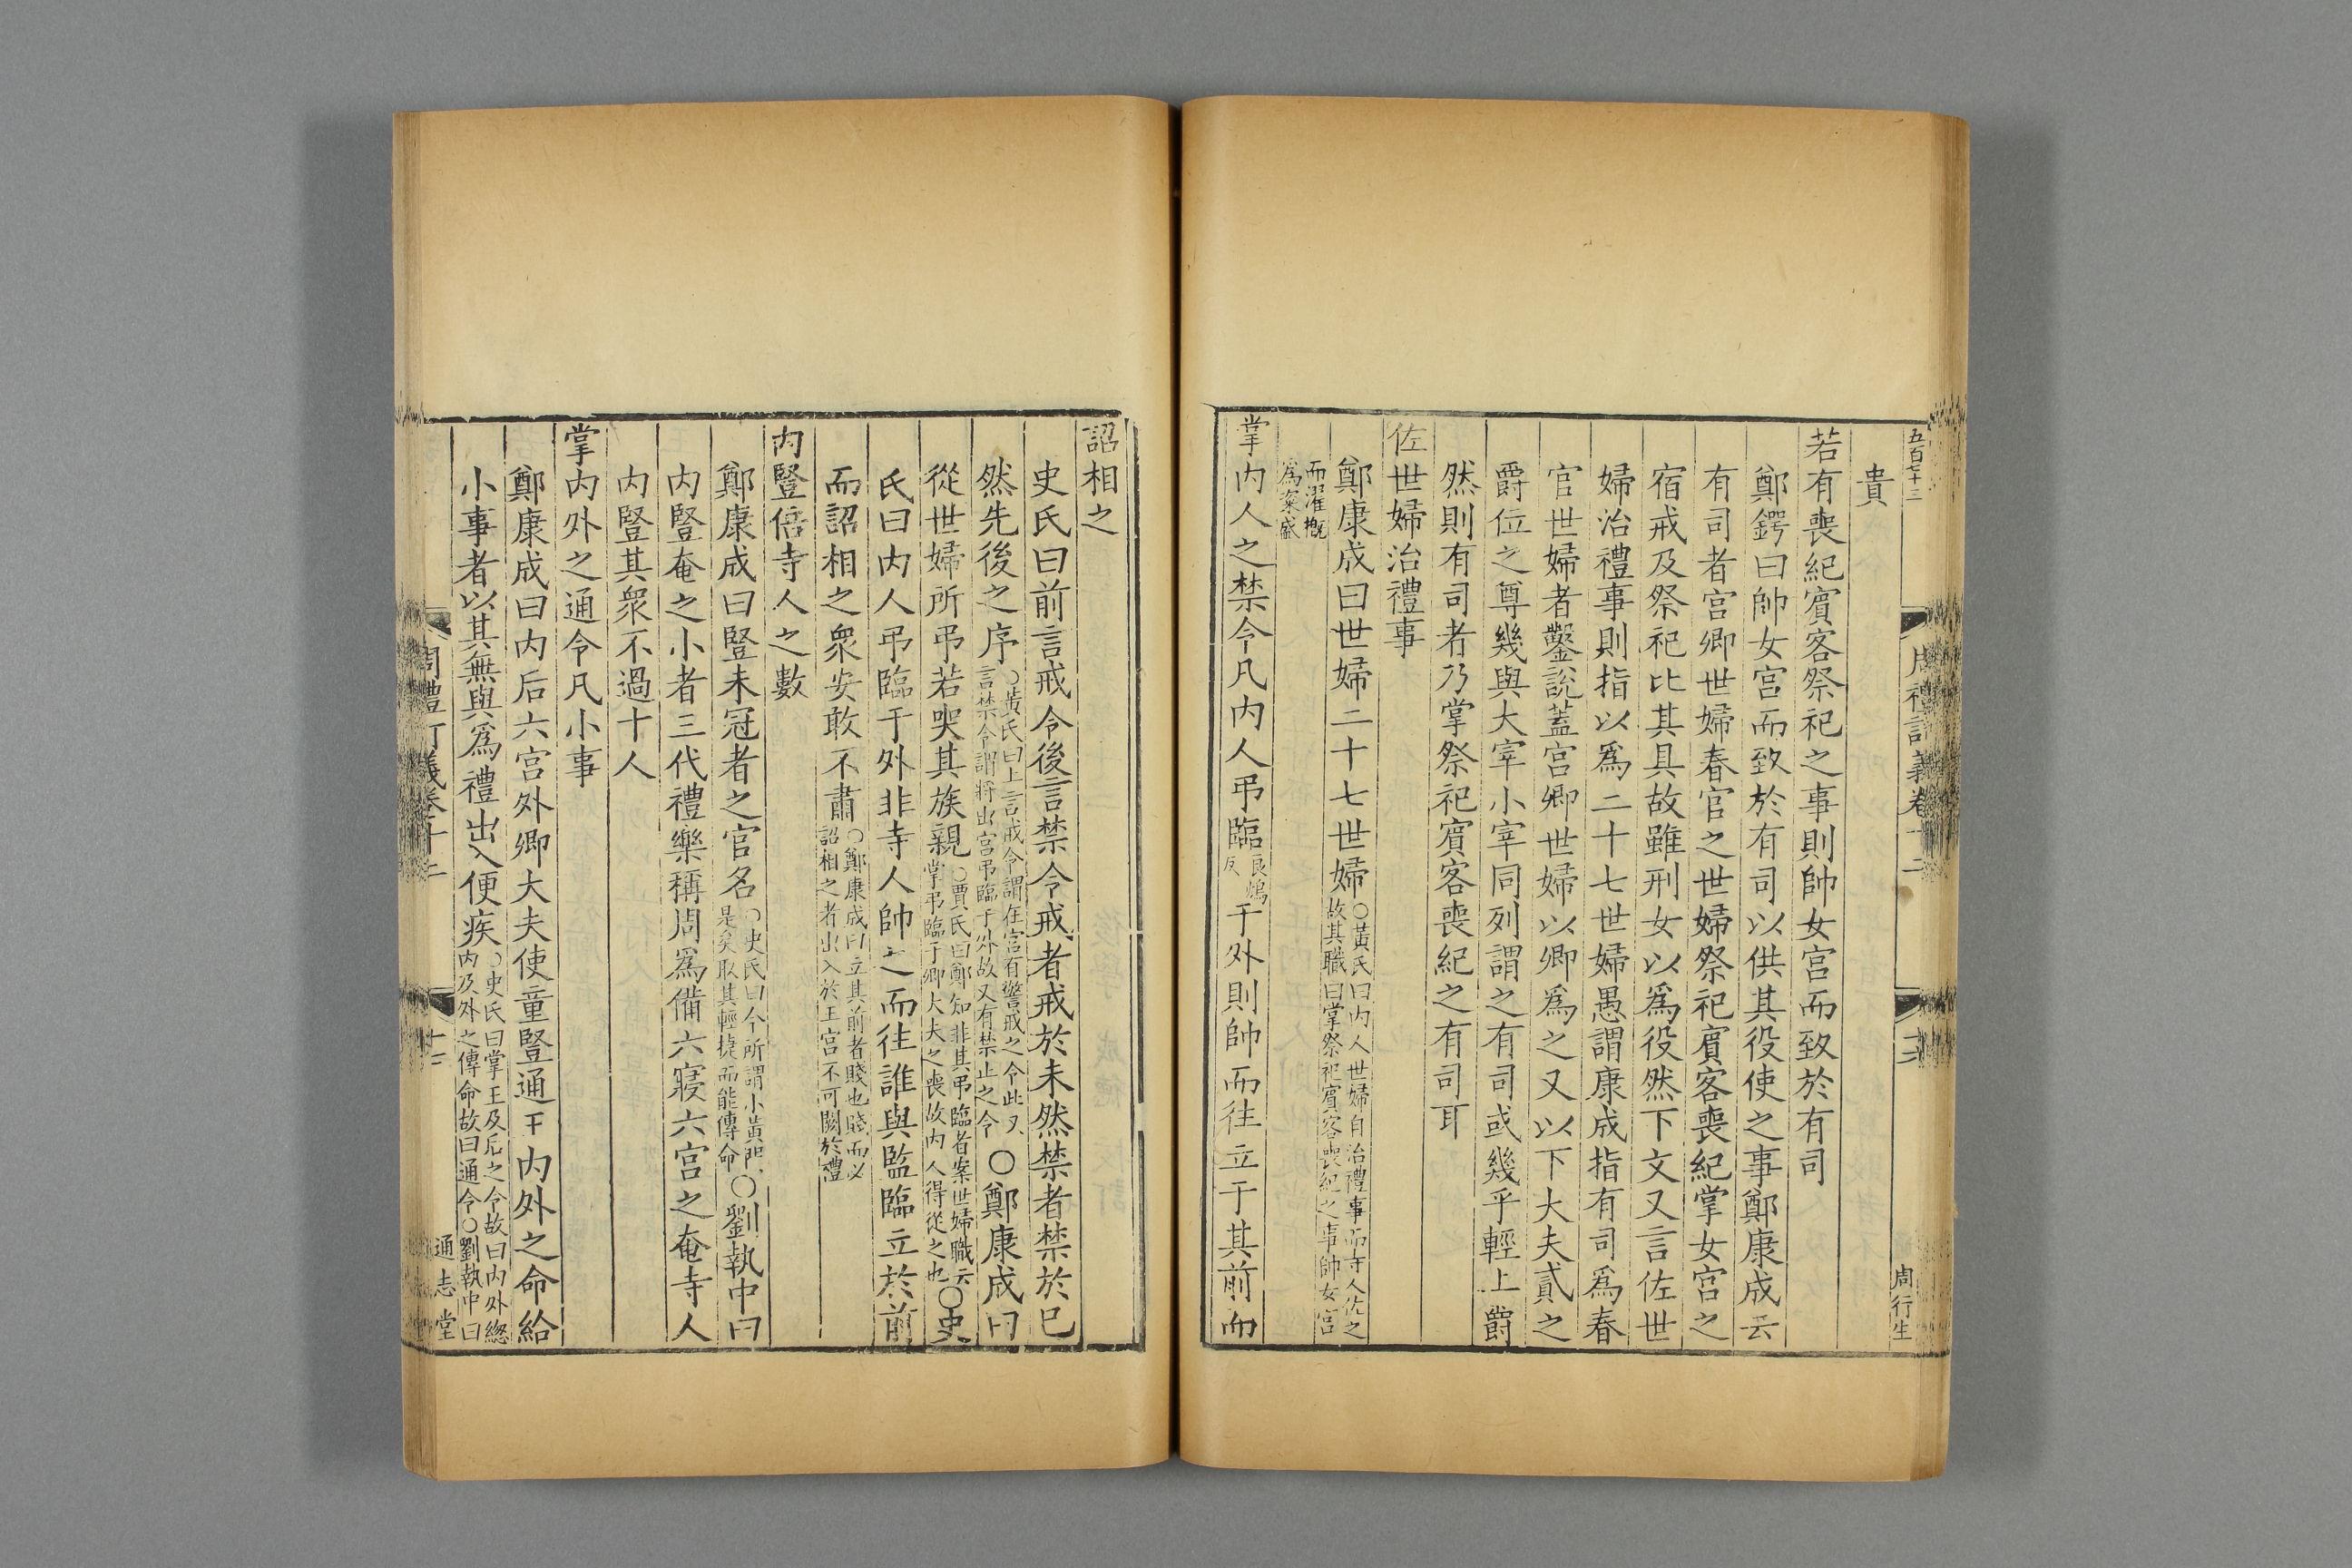 五百七十三
周禮訂義卷十二
周行生
貴
若有喪紀賓客祭祀之事則帥女宮而致於有司
鄭鍔曰帥女宮而致於有司以供其役使之事鄭康成云
有司者宮卿世婦春官之世婦祭祀賓客喪紀掌女宮之
宿戒及祭祀比其具故雖刑女以為役然下文又言佐世
婦治禮事則指以為二十七世婦愚謂康成指有司為春
官世婦者鑿說蓋宮卿世婦以卿為之又以下大夫貳之
爵位之尊幾與大宰小宰同列謂之有司或幾乎輕上爵
然則有司者乃掌祭祀賓客喪紀之有司耳
佐世婦治禮事
鄭康成曰世婦二十七世婦
○黃氏曰内人世婦自治禮事而寺人佐之
故其職曰掌祭祀賓客喪紀之事帥女宮
而濯摡
為粢盛
掌内人之禁令凡内人弔臨良鴆反于外則帥而往立于其前而
詔相之
史氏曰前言戒令後言禁令戒者戒於未然禁者禁於已
然先後之序
○黃氏曰上言戒令謂在宮有警戒之令此又
言禁令謂將出宮弔臨于外故又有禁止之令
○鄭康成曰
從世婦所弔若哭其族親
○賈氏曰鄭知非其弔臨者案世婦職云
掌弔臨于卿大夫之喪故内人得從之也
○史
氏曰内人弔臨于外非寺人帥之而往誰與監臨立於前
而詔相之衆安敢不肅
○鄭康成曰立其前者賤也賤而必
詔相之者出入於王宮不可闕於禮
内豎倍寺人之數
鄭康成曰豎未冠者之官名
○史氏曰今所謂小黃門
是矣取其輕捷而能傳命
○劉執中曰
内豎奄之小者三代禮樂稱周為備六寢六宮之奄寺人
内豎其衆不過十人
掌内外之通令凡小事
鄭康成曰内后六宮外卿大夫使童豎通王内外之命給
小事者以其無與為禮出入便疾
○史氏曰掌王及后之令故曰内外緫
内及外之傳命故曰通令○劉執中曰
周禮訂義卷十二
十二
通志堂